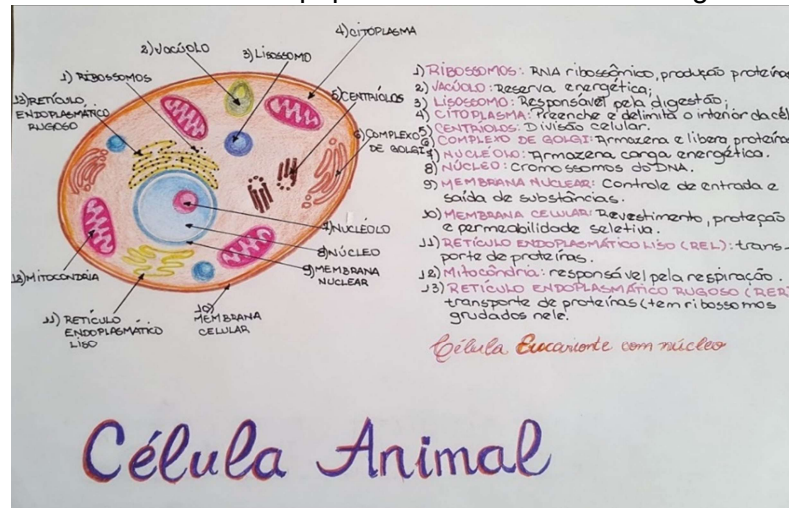 4) CITOPLASMA
2) VACÚOLO
3) LISOSSOMO
1) RIBOSSOMOS
13) RETÍCULO
ENDOPLASMÁTICO
RUGOSO
5) CENTRÍOLOS
6) COMPLEXO
DE GOLGI
7) NUCLÉOLO
8) NÚCLEO
9) MEMBRANA
NUCLEAR
12) MITOCÔNDRIA
10)
MEMBRANA
CELULAR
11) RETÍCULO
ENDOPLASMÁTICO
LISO
1) RIBOSSOMOS: RNA ribossômico, produção proteínas
2) VACÚOLO: Reserva energética;
3) LISOSSOMO: Responsável pela digestão;
4) CITOPLASMA: Preenche e delimita o interior da cél
5) CENTRÍOLOS: Divisão celular.
6) COMPLEXO DE GOLGI: Armazena e libera proteína
7) NUCLÉOLO: Armazena carga energética.
8) NÚCLEO: cromossomos do DNA.
9) MEMBRANA NUCLEAR: Controle de entrada e
saída de substâncias.
10) MEMBRANA CELULAR: Revestimento, proteção
e permeabilidade seletiva.
11) RETÍCULO ENDOPLASMÁTICO LISO (REL): trans-
porte de proteínas.
12) Mitocôndria: responsável pela respiração.
13) RETÍCULO ENDOPLASMÁTICO RUGOSO (RER)
transporte de proteínas (tem ribossomos
grudados nele.
Célula Eucarionte com núcleo
Célula Animal